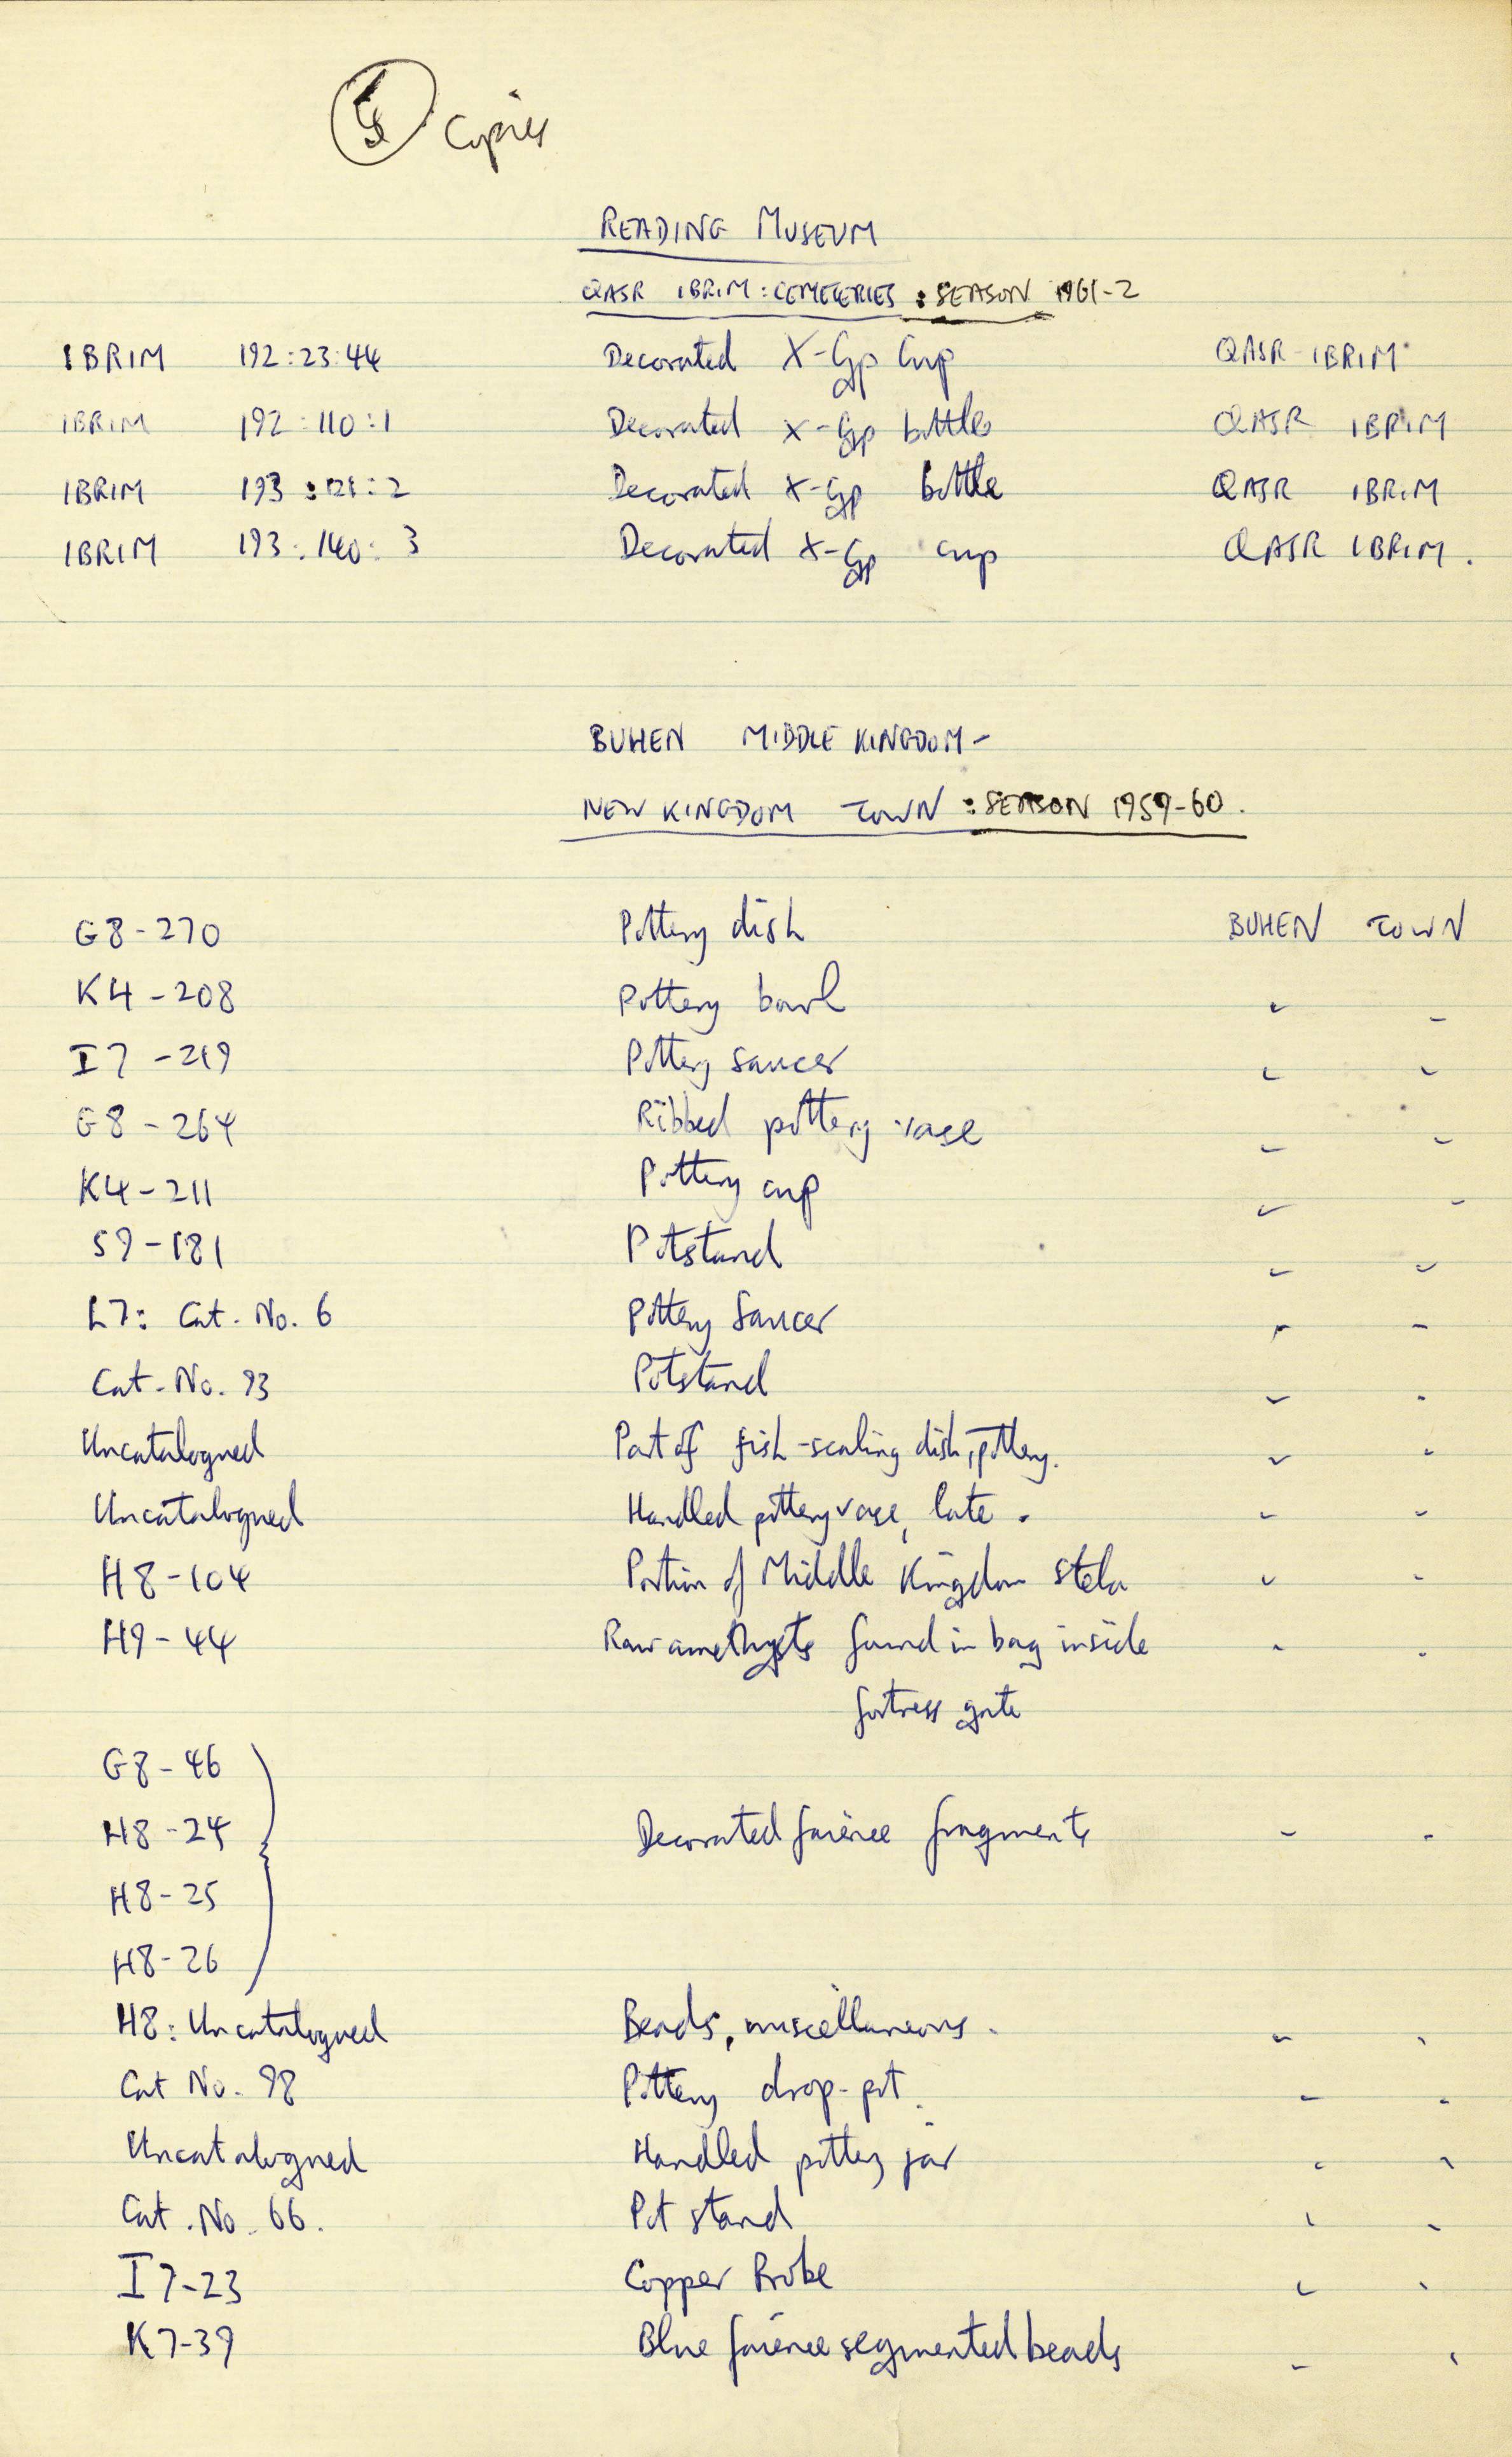 Copies
READING MUSEUM
QASR IBRIM : CEMETERIES : SEASON 1961-2
IBRIM 192:23:44 Decorated X-Gp Cup QASR-IBRIM
IBRIM 192:110:1 Decorated X-Gp bottle QASR IBRIM
IBRIM 193:121:2 Decorated X-Gp bottle QASR IBRIM
IBRIM 193:140:3 Decorated X-Gp cup QASR IBRIM.
BUHEN MIDDLE KINGDOM -
NEW KINGDOM TOWN : SEASON 1959-60.
G8-270 Pottery dish BUHEN TOWN
K4-208 Pottery bowl " "
I7-219 Pottery saucer " "
G8-264 Ribbed pottery vase " "
K4-211 Pottery cup " "
S9-181 Potstand " "
L7: Cat. No. 6 Pottery Saucer " "
Cat. No. 93 Potstand " "
Uncatalogued Part of fish-scaling dish, pottery. " "
Uncatalogued Handled pottery vase, late. " "
H8-104 Portion of Middle Kingdom stela " "
H9-44 Raw amethysts found in bag inside " "
fortress gate
G8-46
H8-24 Decorated faience fragments " "
H8-25
H8-26
H8: Uncatalogued Beads, miscellaneous. " "
Cat No. 98 Pottery drop-pot. " "
Uncatalogued Handled pottery jar " "
Cat. No. 66. Pot stand " "
I7-23 Copper Probe " "
K7-39 Blue faience segmented beads " "